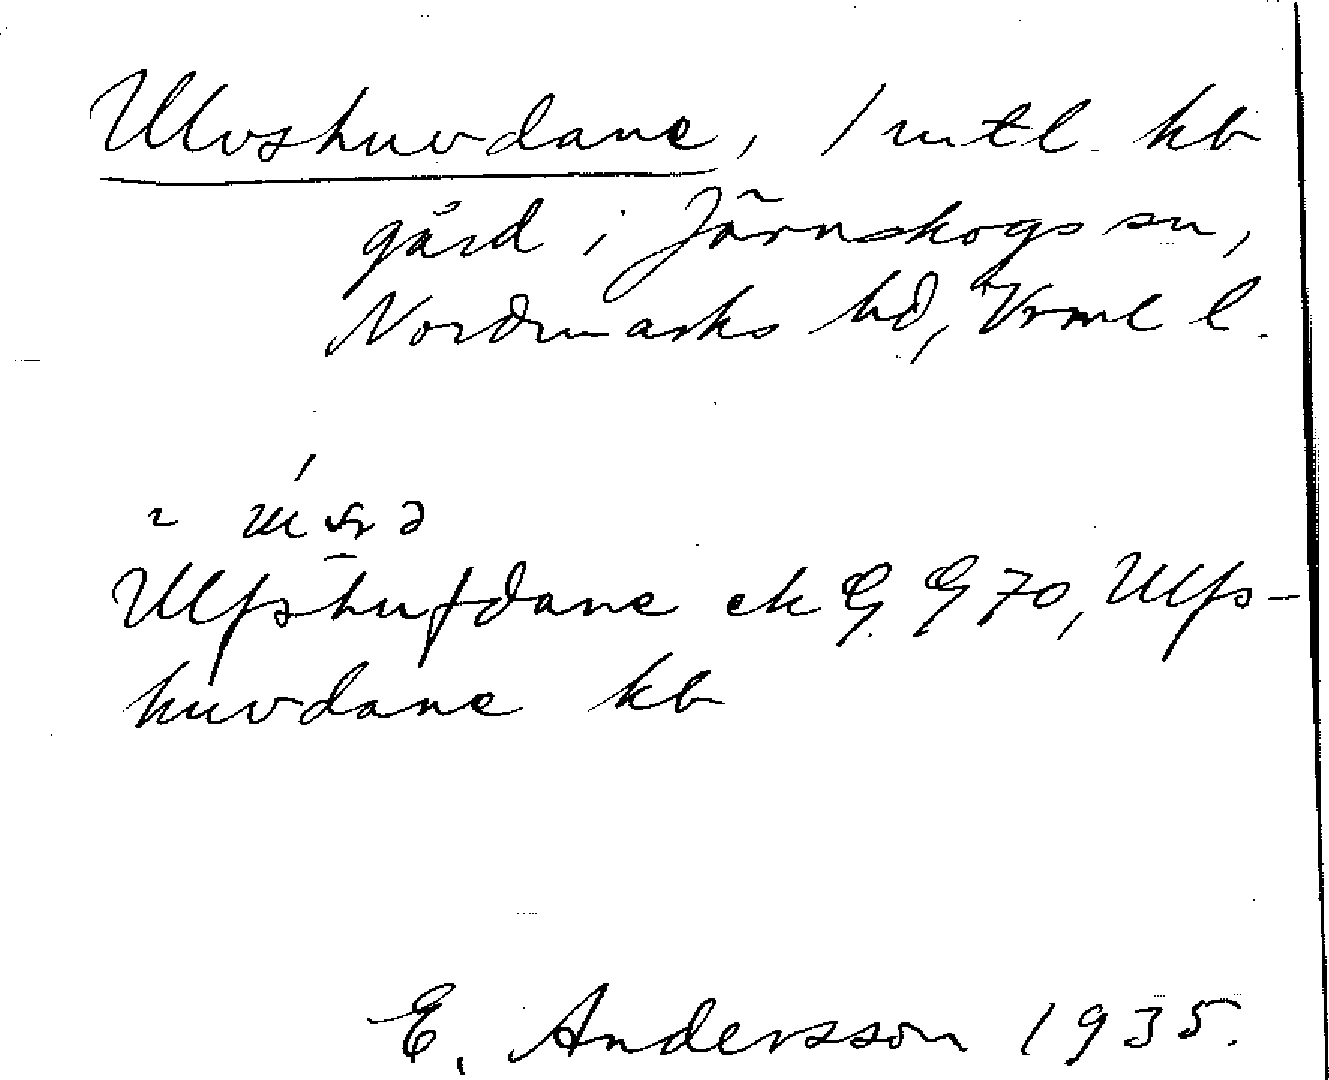 Ulvshuvdane, 1 mtl kb
gård i Järnskogs sn,
Nordmarks hd, Vrml l.
Ulfshufdane ek G. G 70, Ulfs-
huvdane kb
E. Andersson 1935.